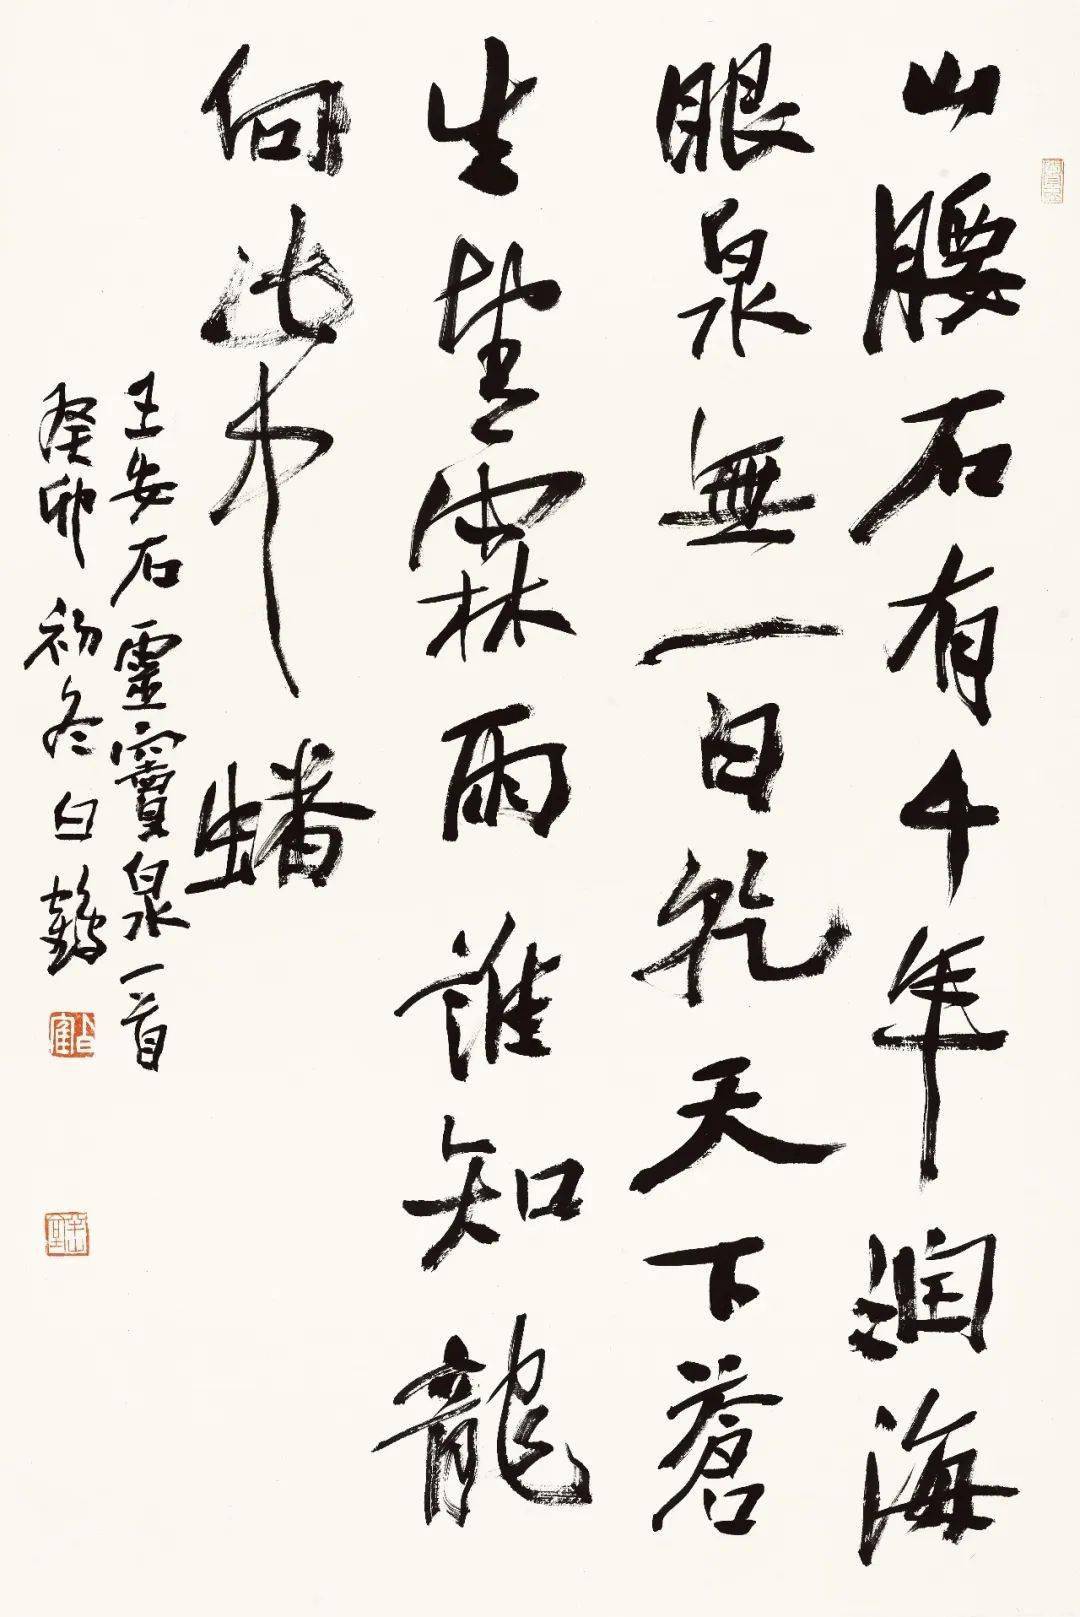 山腰石有千年潤海
眼泉無一日乾天下蒼
生望霖雨誰知龍
向此中蟠
王安石靈竇泉一首
癸卯初冬白鶴